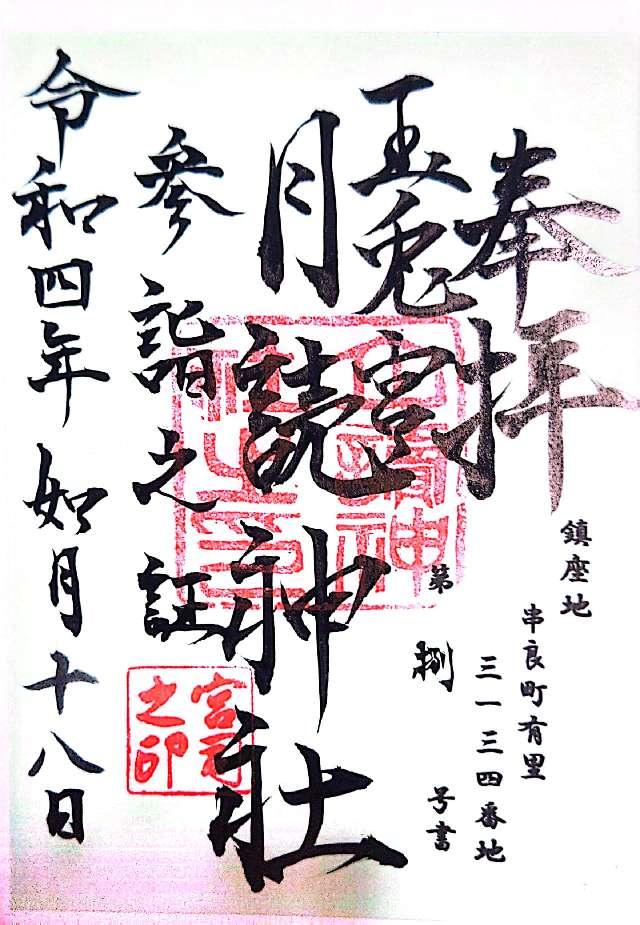 奉拝
鎮座地
串良町有里
三一三四番地
玉兎宮
第捌号書
月読神社
参詣之証
令和四年如月十八日